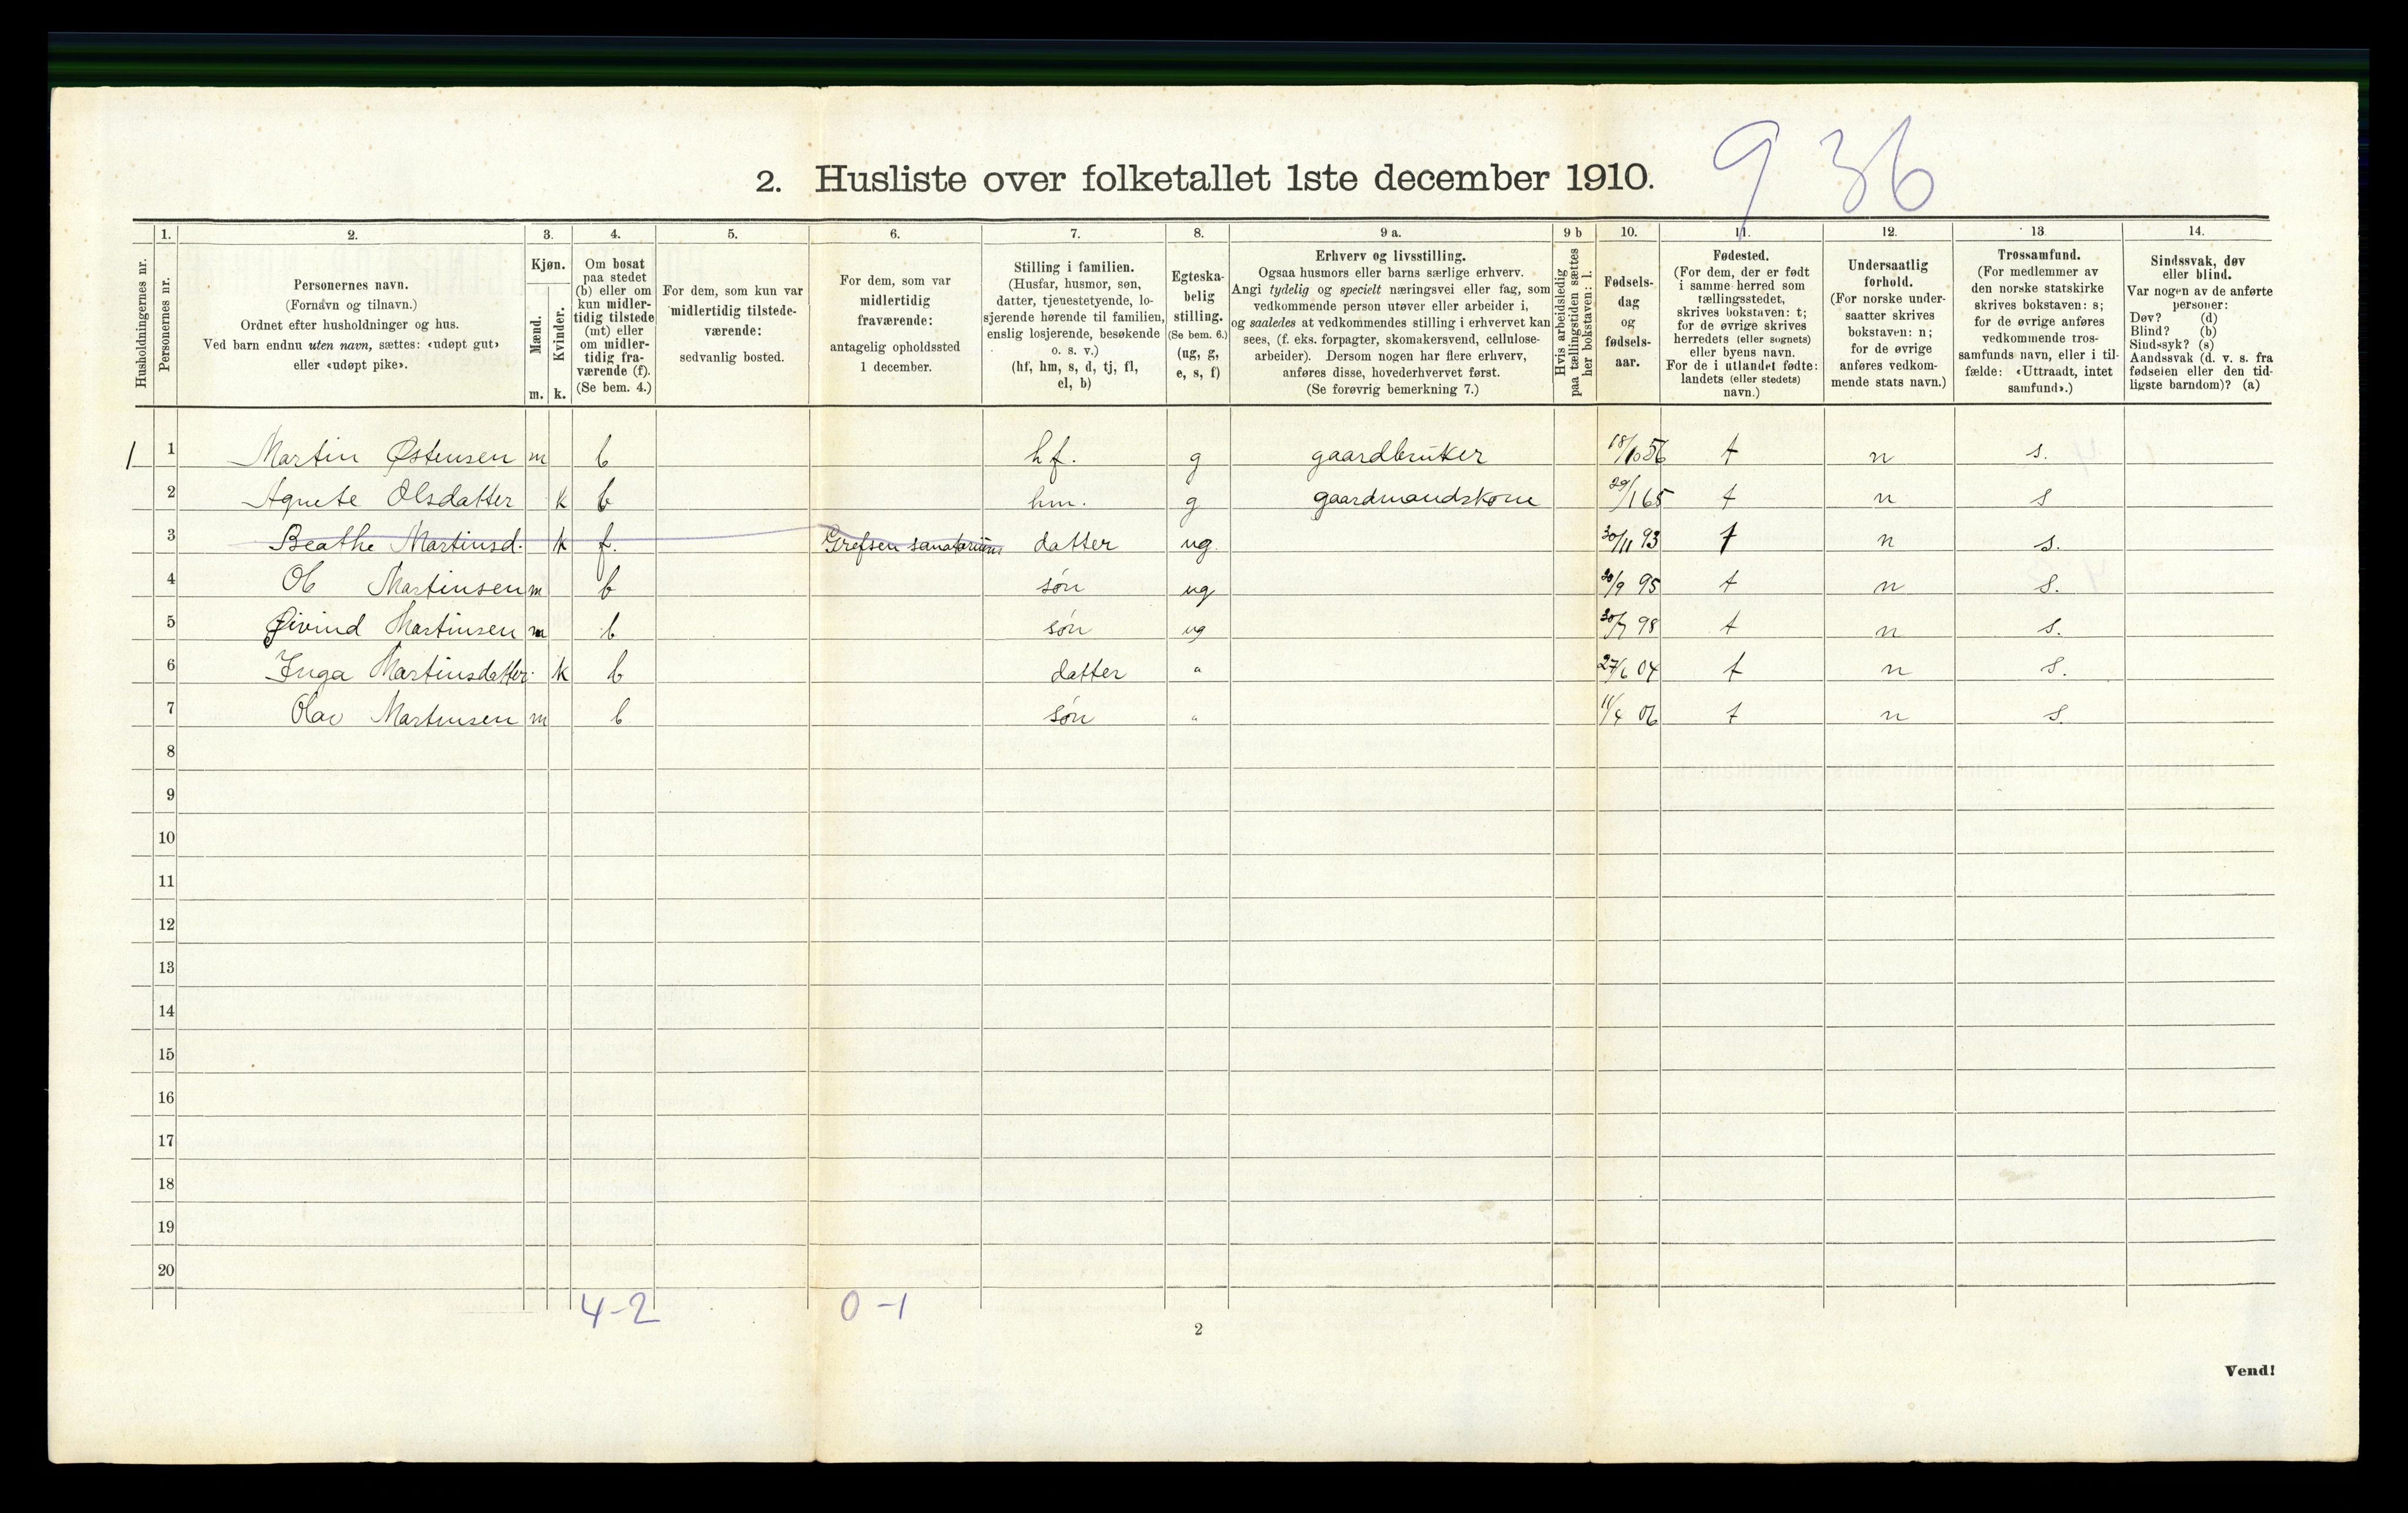 9 36
2. Husliste over folketallet 1ste december 1910.
1. 2. 3. 4. 5. 6. 7. 8. 9 a. 9 b 10. 11. 12. 13 14.
Husholdningernes nr.
Personernes nr.
Personernes navn.
(Fornavn og tilnavn.)
Ordnet efter husholdninger og hus.
Ved barn endnu uten navn, sættes: «udøpt gut»
eller «udøpt pike».
Kjøn.
Mænd.
Kvinder.
m. k.
Om bosat
paa stedet
(b) eller om
kun midler-
tidig tilstede
(mt) eller
om midler-
tidig fra-
værende (f).
(Se bem. 4.)
For dem, som kun var
midlertidig tilstede-
værende:
sedvanlig bosted.
For dem, som var
midlertidig
fraværende:
antagelig opholdssted
1 december.
Stilling i familien.
(Husfar, husmor, søn,
datter, tjenestetyende, lo-
sjerende hørende til familien,
enslig losjerende, besøkende
o. s. v.)
(hf, hm, s, d, tj, fl,
el, b)
Egteska-
belig
stilling.
(Se bem. 6.)
(ug, g,
e, s, f)
Erhverv og livsstilling.
Ogsaa husmors eller barns særlige erhverv.
Angi tydelig og specielt næringsvei eller fag, som
vedkommende person utøver eller arbeider i,
og saaledes at vedkommendes stilling i erhvervet kan
sees, (f. eks. forpagter, skomakersvend, cellulose-
arbeider). Dersom nogen har flere erhverv,
anføres disse, hovederhvervet først.
(Se forøvrig bemerkning 7.)
Hvis arbeidsledig
paa tællingstiden sættes
her bokstaven: l.
Fødsels-
dag
og
fødsels-
aar.
Fødested.
(For dem, der er født
i samme herred som
tællingsstedet,
skrives bokstaven: t;
for de øvrige skrives
herredets (eller sognets)
eller byens navn.
For de i utlandet fødte:
landets (eller stedets)
navn.)
Undersaatlig
forhold.
(For norske under-
saatter skrives
bokstaven: n;
for de øvrige
anføres vedkom-
mende stats navn.)
Trossamfund.
(For medlemmer av
den norske statskirke
skrives bokstaven: s;
for de øvrige anføres
vedkommende tros-
samfunds navn, eller i til-
fælde: «Uttraadt, intet
samfund».)
Sindssvak, døv
eller blind.
Var nogen av de anførte
personer:
Døv? (d)
Blind? (b)
Sindssyk? (s)
Aandssvak (d. v. s. fra
fødselen eller den tid-
ligste barndom)? (a)
1 1 Martin Østensen m b hf. g gaardbruker 18/10 56 t n s.
2 Agnete Olsdatter k b hm. g gaardmandskone 29/1 65 t n s
3 Beathe Martinsd. k f. Grefsen sanatorium datter ug. 30/11 93 t n s.
4 Ole Martinsen m b søn ug 30/9 95 t n s.
5 Øivind Martinsen m b søn ug 30/7 98 t n s.
6 Inga Martinsdatter. k b datter " 27/6 04 t n s.
7 Olav Martinsen m b søn " 11/4 06 t n s.
8
9
10
11
12
13
14
15
16
17
18
19
20
4-2 0-1
2
Vend!